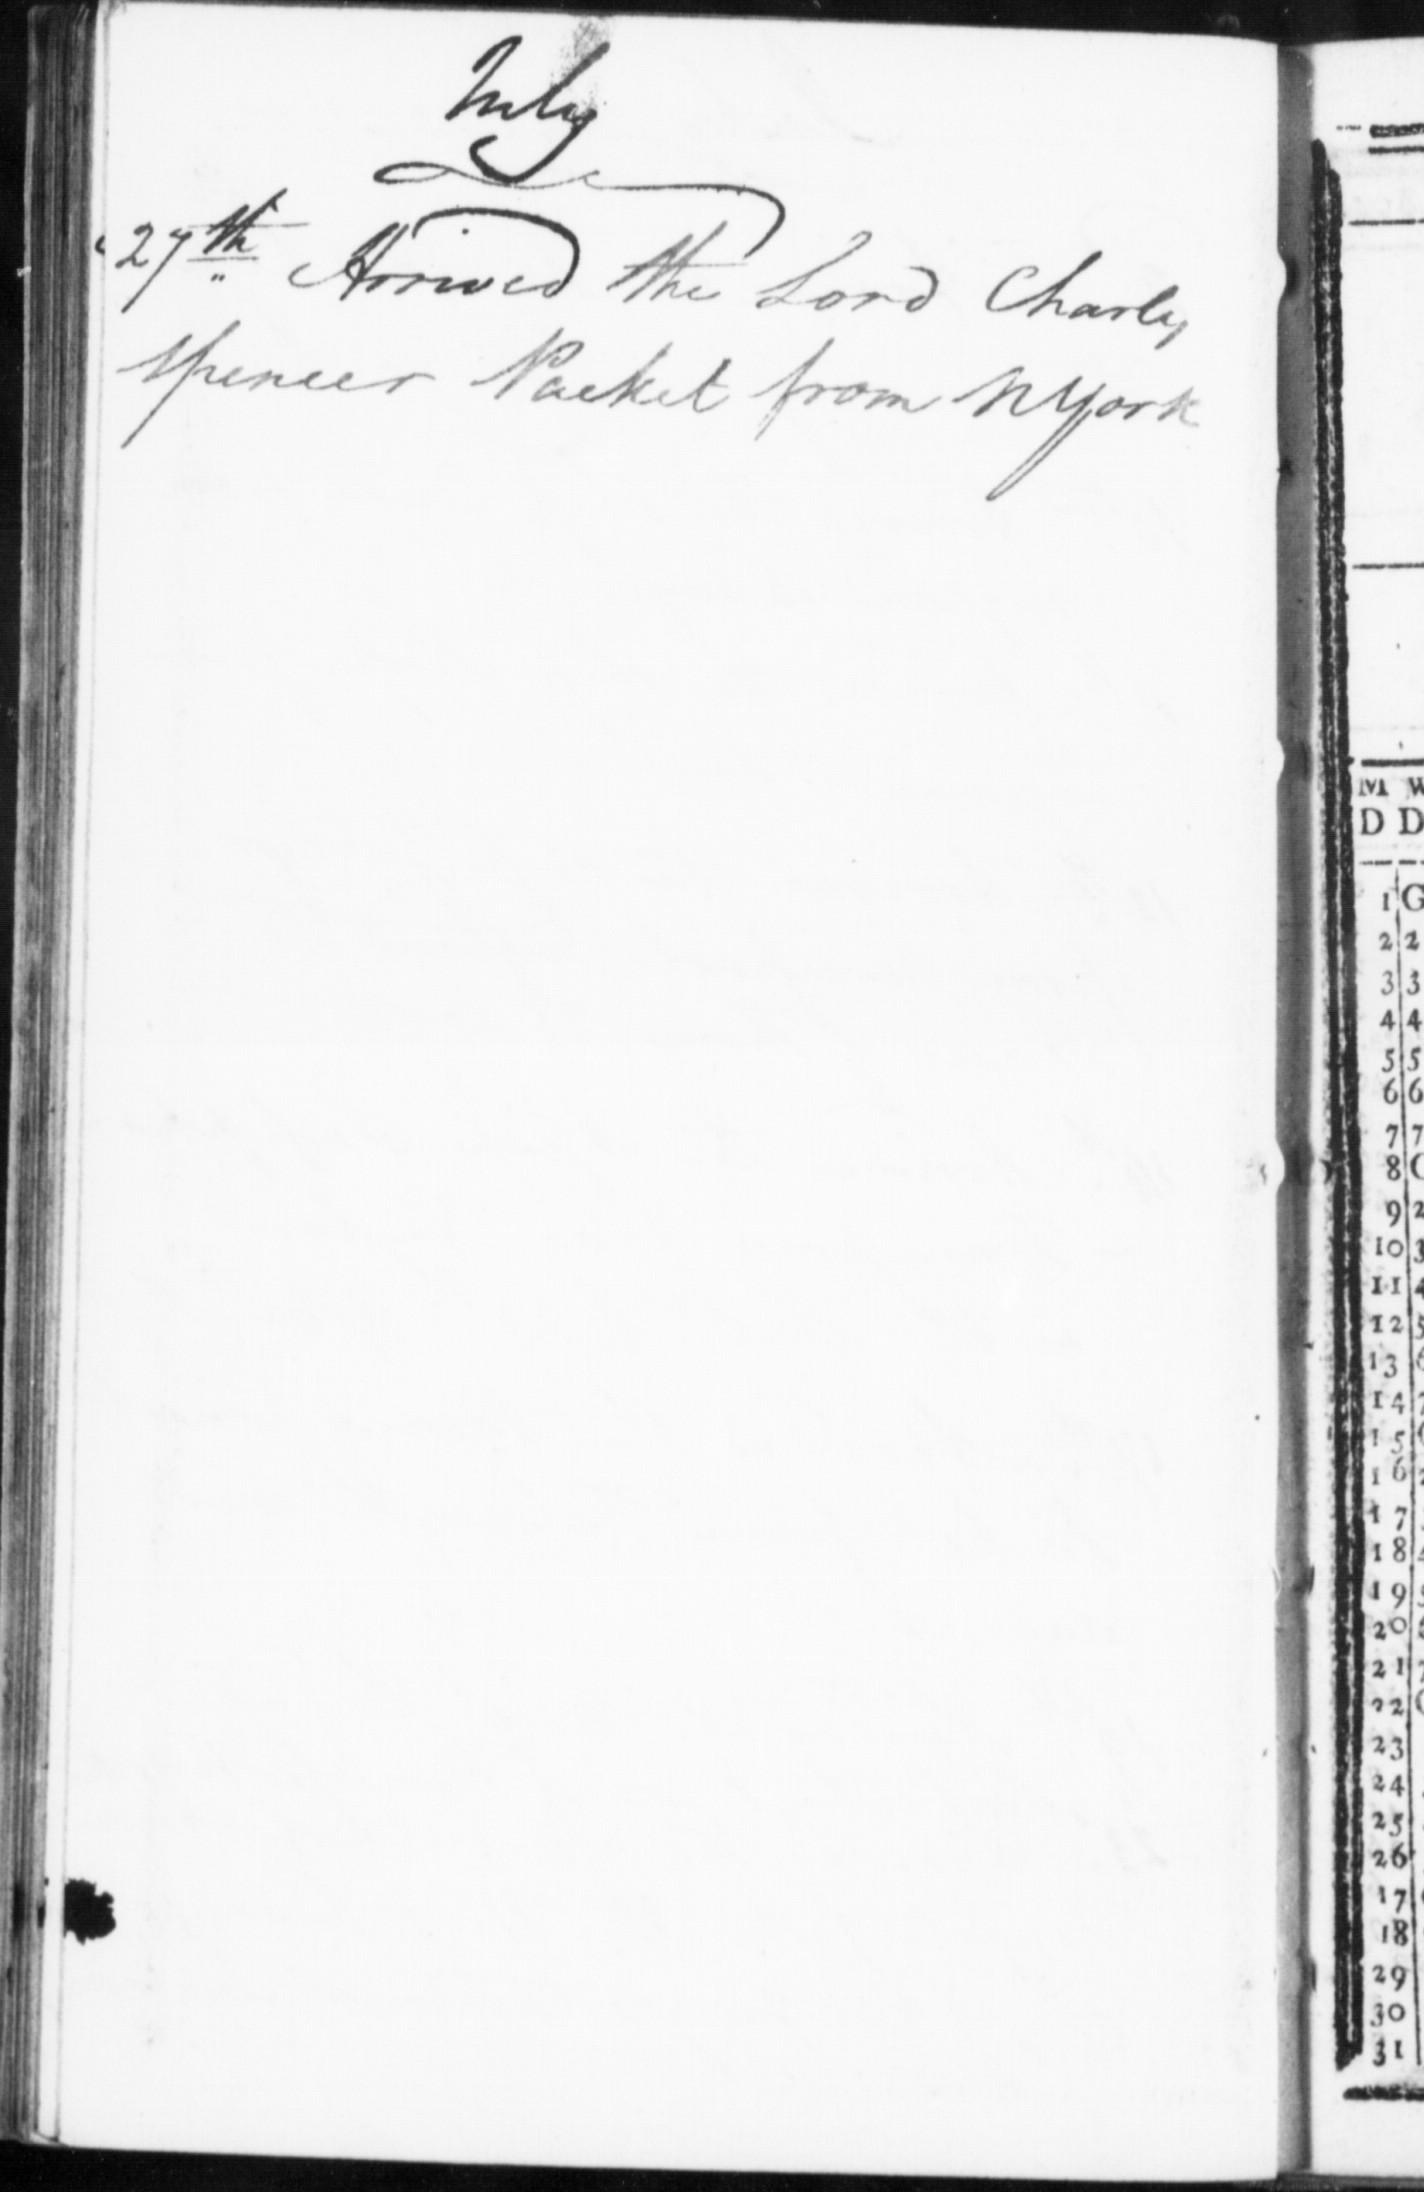 July
27th Arrived the Lord Charly
Spencer Packet from NYork
M W
D D
1 G
2 2
3 3
4 4
5 5
6 6
7 7
8
9 2
10 3
11 4
12 5
13 6
14 7
15
16 2
17
18 4
19 5
20
21 7
22
23
24
25
26
17
18
29
30
31